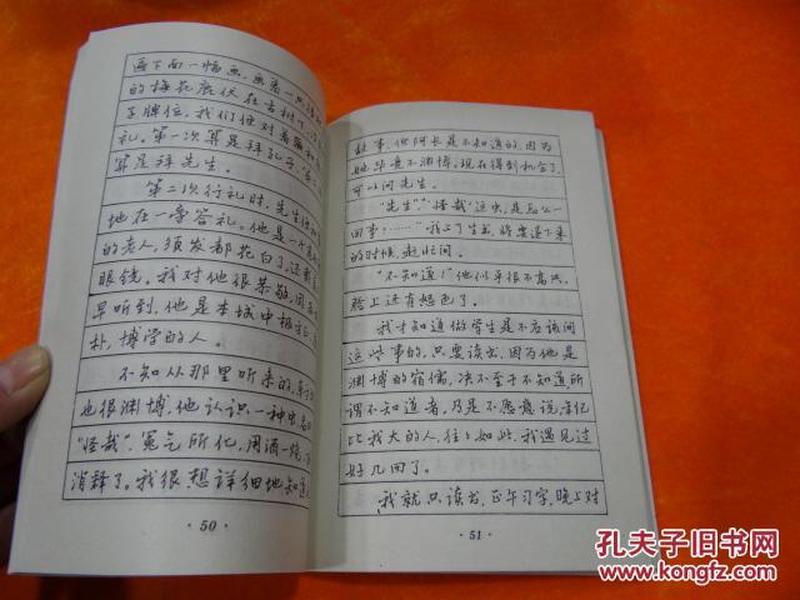 画下面一幅画，画着一只
的梅花鹿伏在古树下。
子牌位，我们便对着匾和
礼。第一次算是拜孔子，第二
算是拜先生。
第二次行礼时，先生便和
地在一旁答礼。他是一个高
的老人，须发都花白了，还戴
眼镜。我对他很恭敬，因
早听到，他是本城中极
朴，博学的人。
不知从那里听来的，东方
也很渊博，他认识一种虫，名
“怪哉”，冤气所化，用酒一烧，
消释了。我很想详细地知道
· 50 ·
故事，但阿长是不知道的，因为
她毕竟不渊博。现在得到机会了，
可以问先生。
“先生”，“怪哉”这虫，是怎么一
回事？……”我上了生书，将要退下来
的时候，赶忙问。
“不知道！”他似乎很不高兴，
脸上还有怒色了。
我才知道做学生是不应该问
这些事的，只要读书，因为他是
渊博的宿儒，决不至于不知道，所
谓不知道者，乃是不愿意说。年纪
比我大的人，往往如此，我遇见过
好几回了。
我就只读书，正午习字，晚上对
· 51 ·
孔夫子旧书网
www.kongfz.com